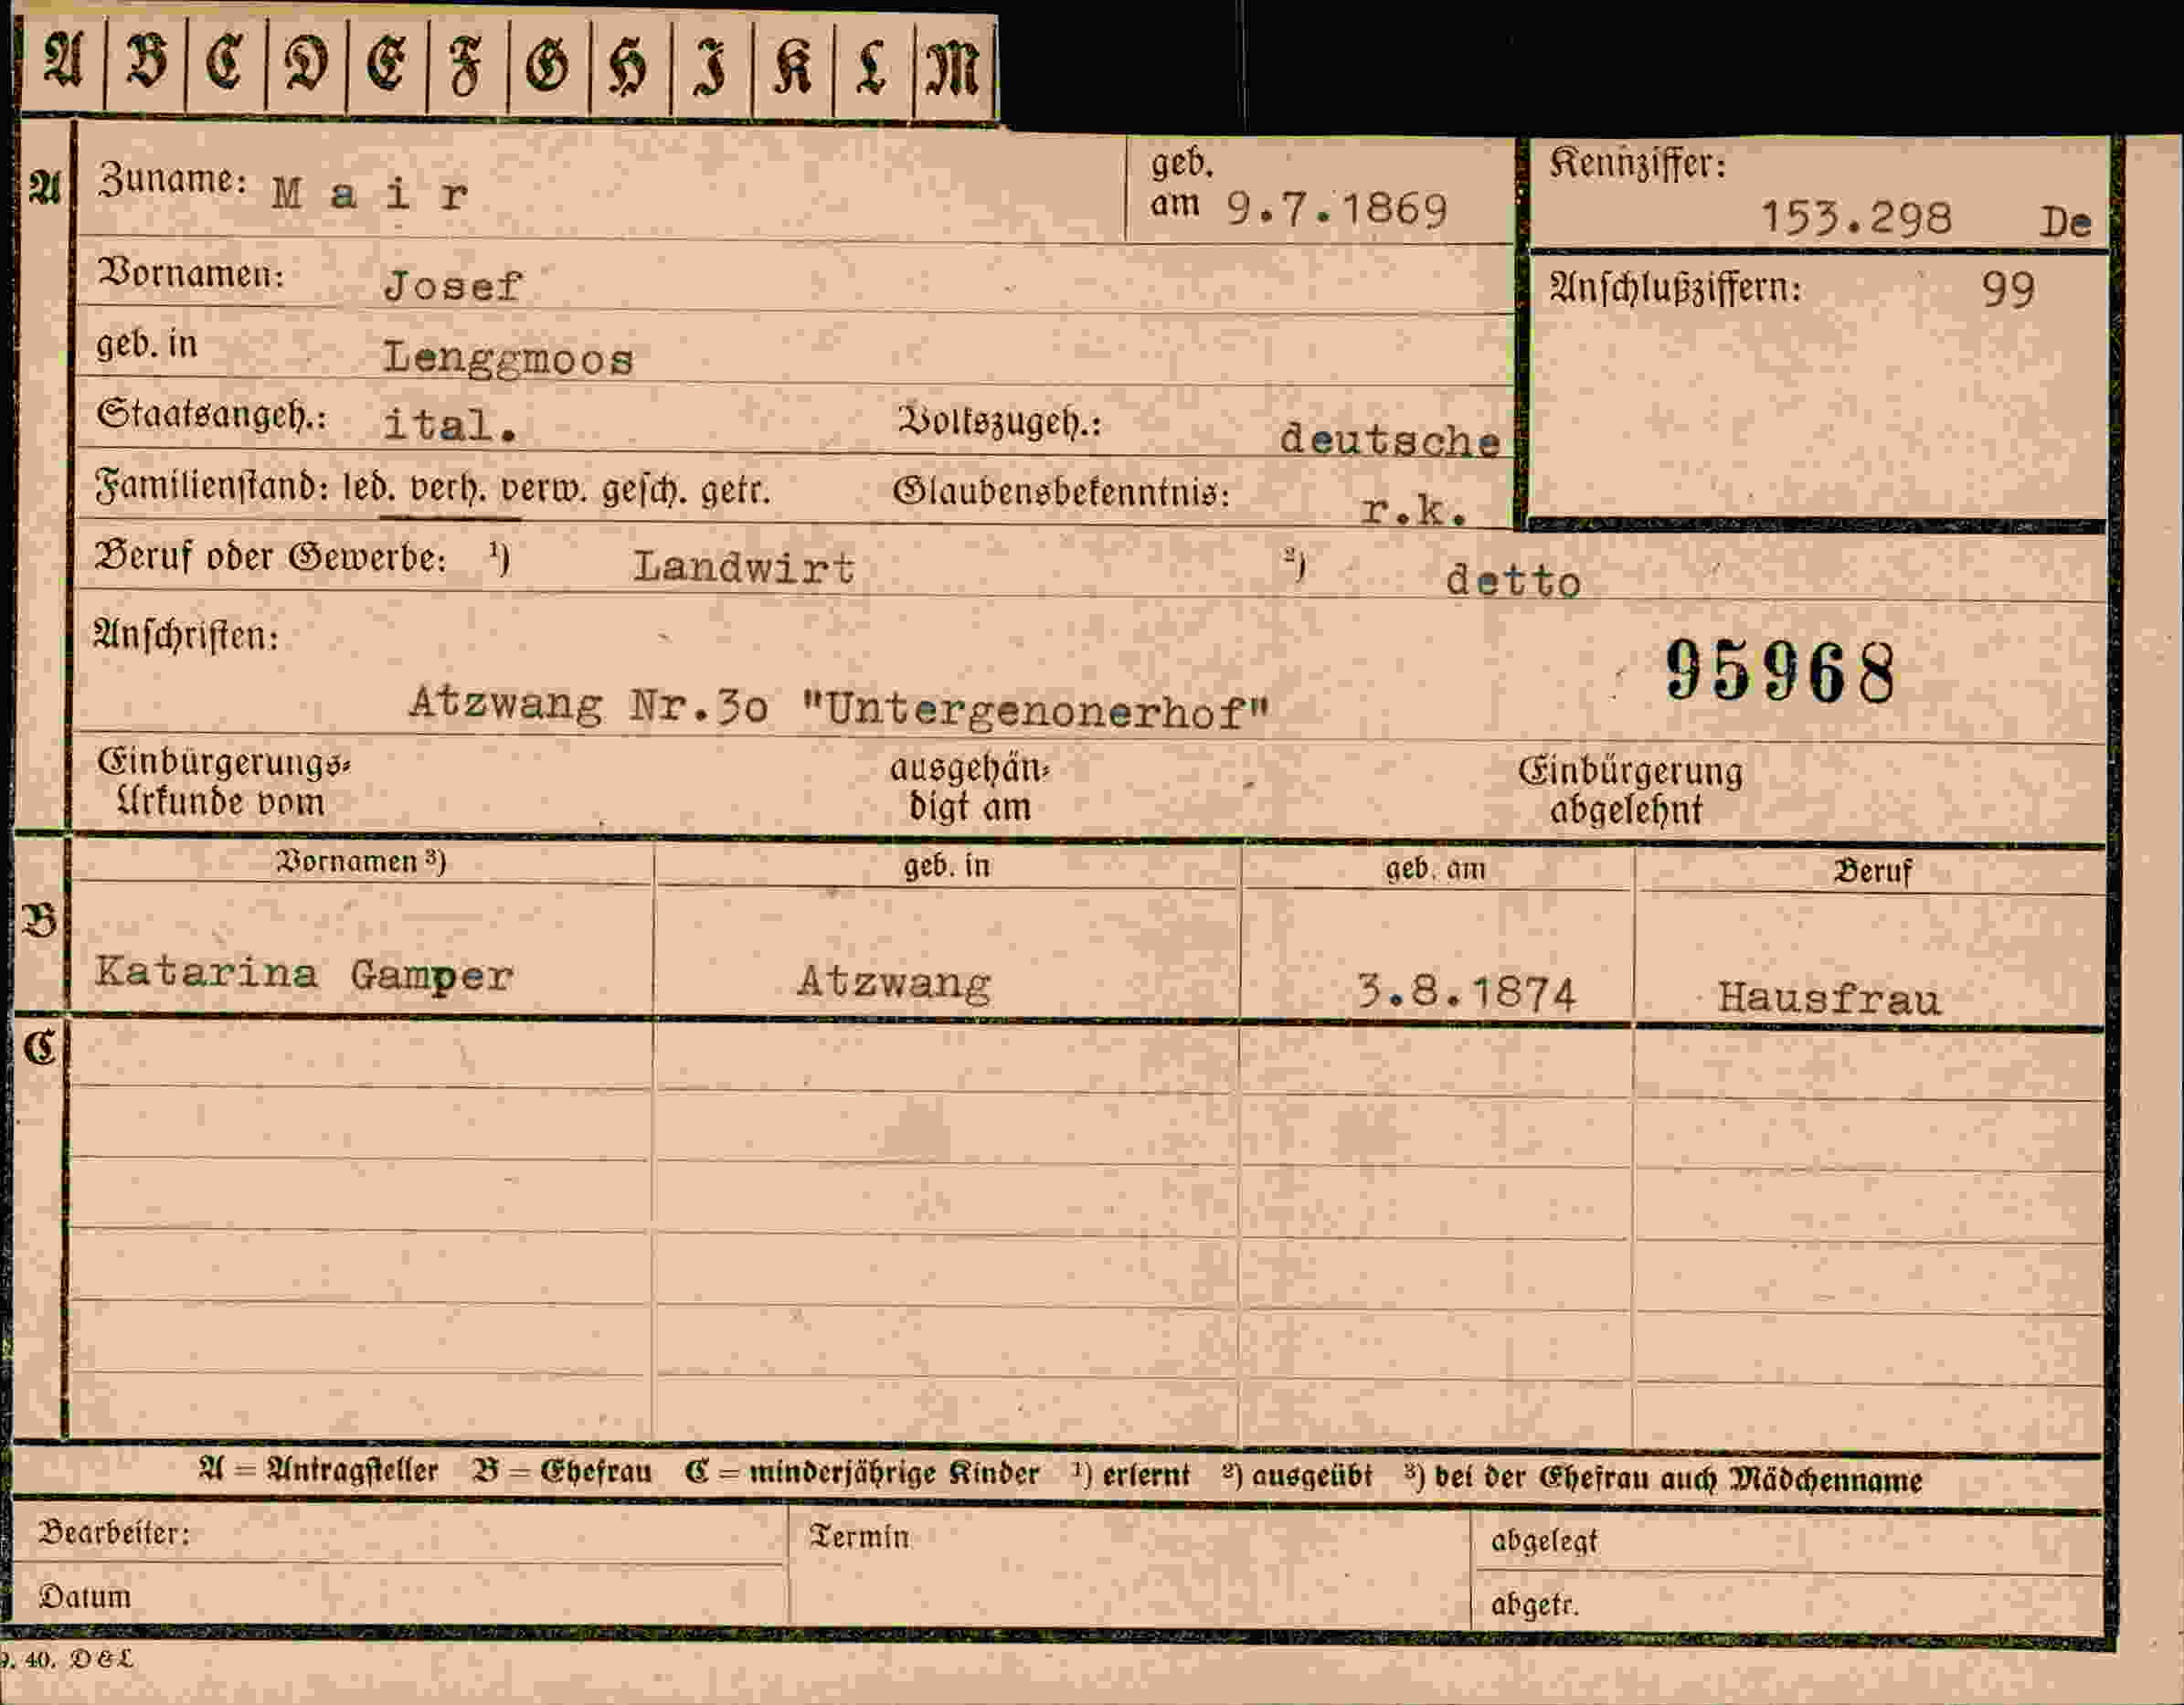 A B C D E F G H I K L M
A Zuname: Mair geb. am 9.7.1869 Kennziffer: 153.298 De
Vornamen: Josef Anschlußziffern: 99
geb. in Lenggmoos
Staatsangeh.: ital. Volkszugeh.: deutsche
Familienstand: led. verh. verw. gesch. getr. Glaubensbekenntnis: r.k.
Beruf oder Gewerbe: ¹) Landwirt ²) detto
Anschriften: 95968
Atzwang Nr.3o "Untergenonerhof"
Einbürgerungs- ausgehän- Einbürgerung
Urkunde vom digt am abgelehnt
Vornamen ³) geb. in geb. am Beruf
B
Katarina Gamper Atzwang 3.8.1874 Hausfrau
C
A = Antragsteller B = Ehefrau C = minderjährige Kinder ¹) erlernt ²) ausgeübt ³) bei der Ehefrau auch Mädchenname
Bearbeiter: Termin abgelegt
Datum abgetr.
40. D & L